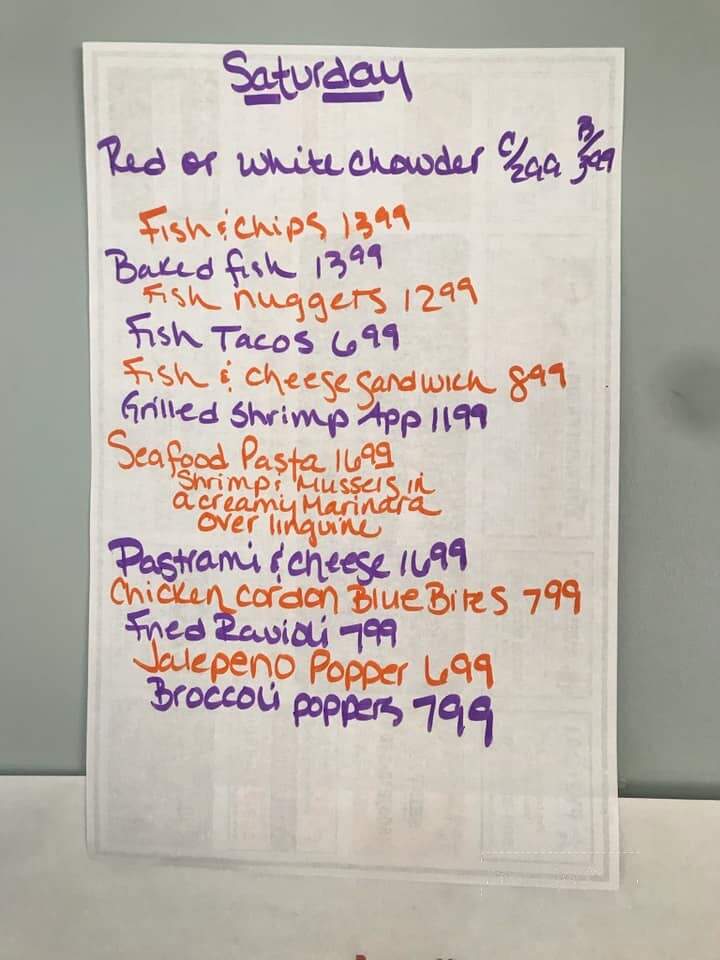 Saturday
Red or white chowder C/299 B/399
Fish & chips 1399
Baked fish 1399
Fish nuggets 1299
Fish Tacos 699
Fish & cheese sandwich 899
Grilled Shrimp App 1199
Seafood Pasta 1699
Shrimp & Mussels in
a creamy Marinara
over linguine
Pastrami & cheese 1699
Chicken cordon Blue Bites 799
Fried Ravioli 799
Jalepeno Popper 699
Broccoli poppers 799